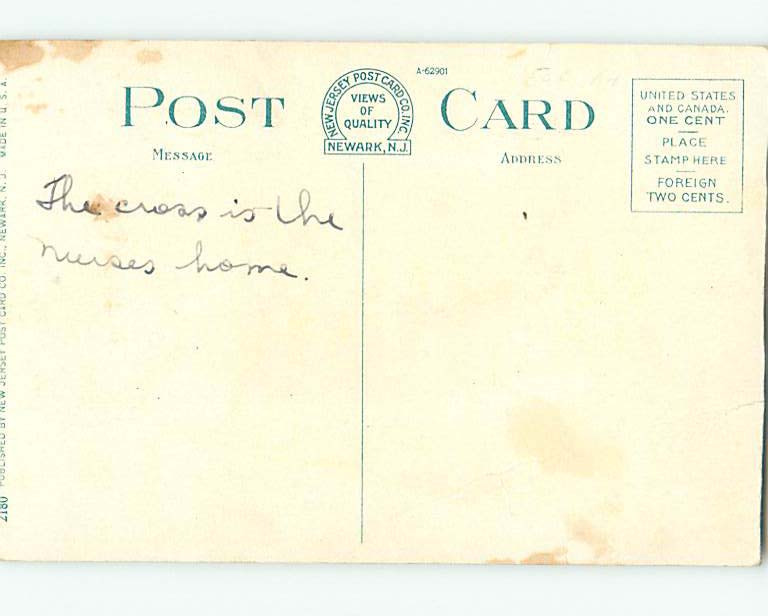 A-62901
POST CARD
NEW JERSEY POST CARD CO. INC.
VIEWS
OF
QUALITY
NEWARK, N.J.
UNITED STATES
AND CANADA.
ONE CENT
PLACE
STAMP HERE
FOREIGN
TWO CENTS.
MESSAGE
ADDRESS
The cross is the
nurses home.
2180 PUBLISHED BY NEW JERSEY POST CARD CO. INC., NEWARK, N. J. MADE IN U. S. A.